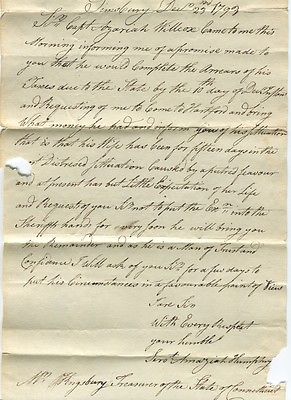 Simsbury Decr 25th 1792
Sir Capt Azariah Willcox Came to me this
Morning informing me of a promise made to
you that he would Complete the arrears of his
Taxes due to the State by the 10th day of
and Requesting of me to Come to Hartford and bring
what money he had and inform you of his situation
that is that his Wife has been for fifteen days in the
most Distressed situation Caused by a putrid feavour
and at present has but Little Expectation of her Life
and Request of you Sr not to put the Exn into the
Sheriffs hands for very soon he will bring you
the Remainder and as he is a Man of Trust and
Confidence I will ask of you Sr for a few days to
put his Circumstances in a favourable point of View
I are Sir
With Every Respect
your humble
Servt Amaziah Humphry
Mr Kingsbury Treasurer of the State of Connecticut